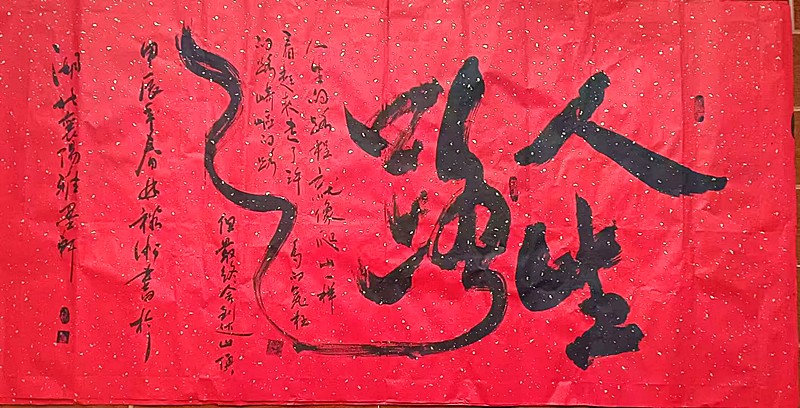 人生路
人生的路程就像爬山一样
看起来走了许多的冤枉
的路崎岖的路
但最终会到达山顶
甲辰年春书於
湖北襄阳雅墨轩